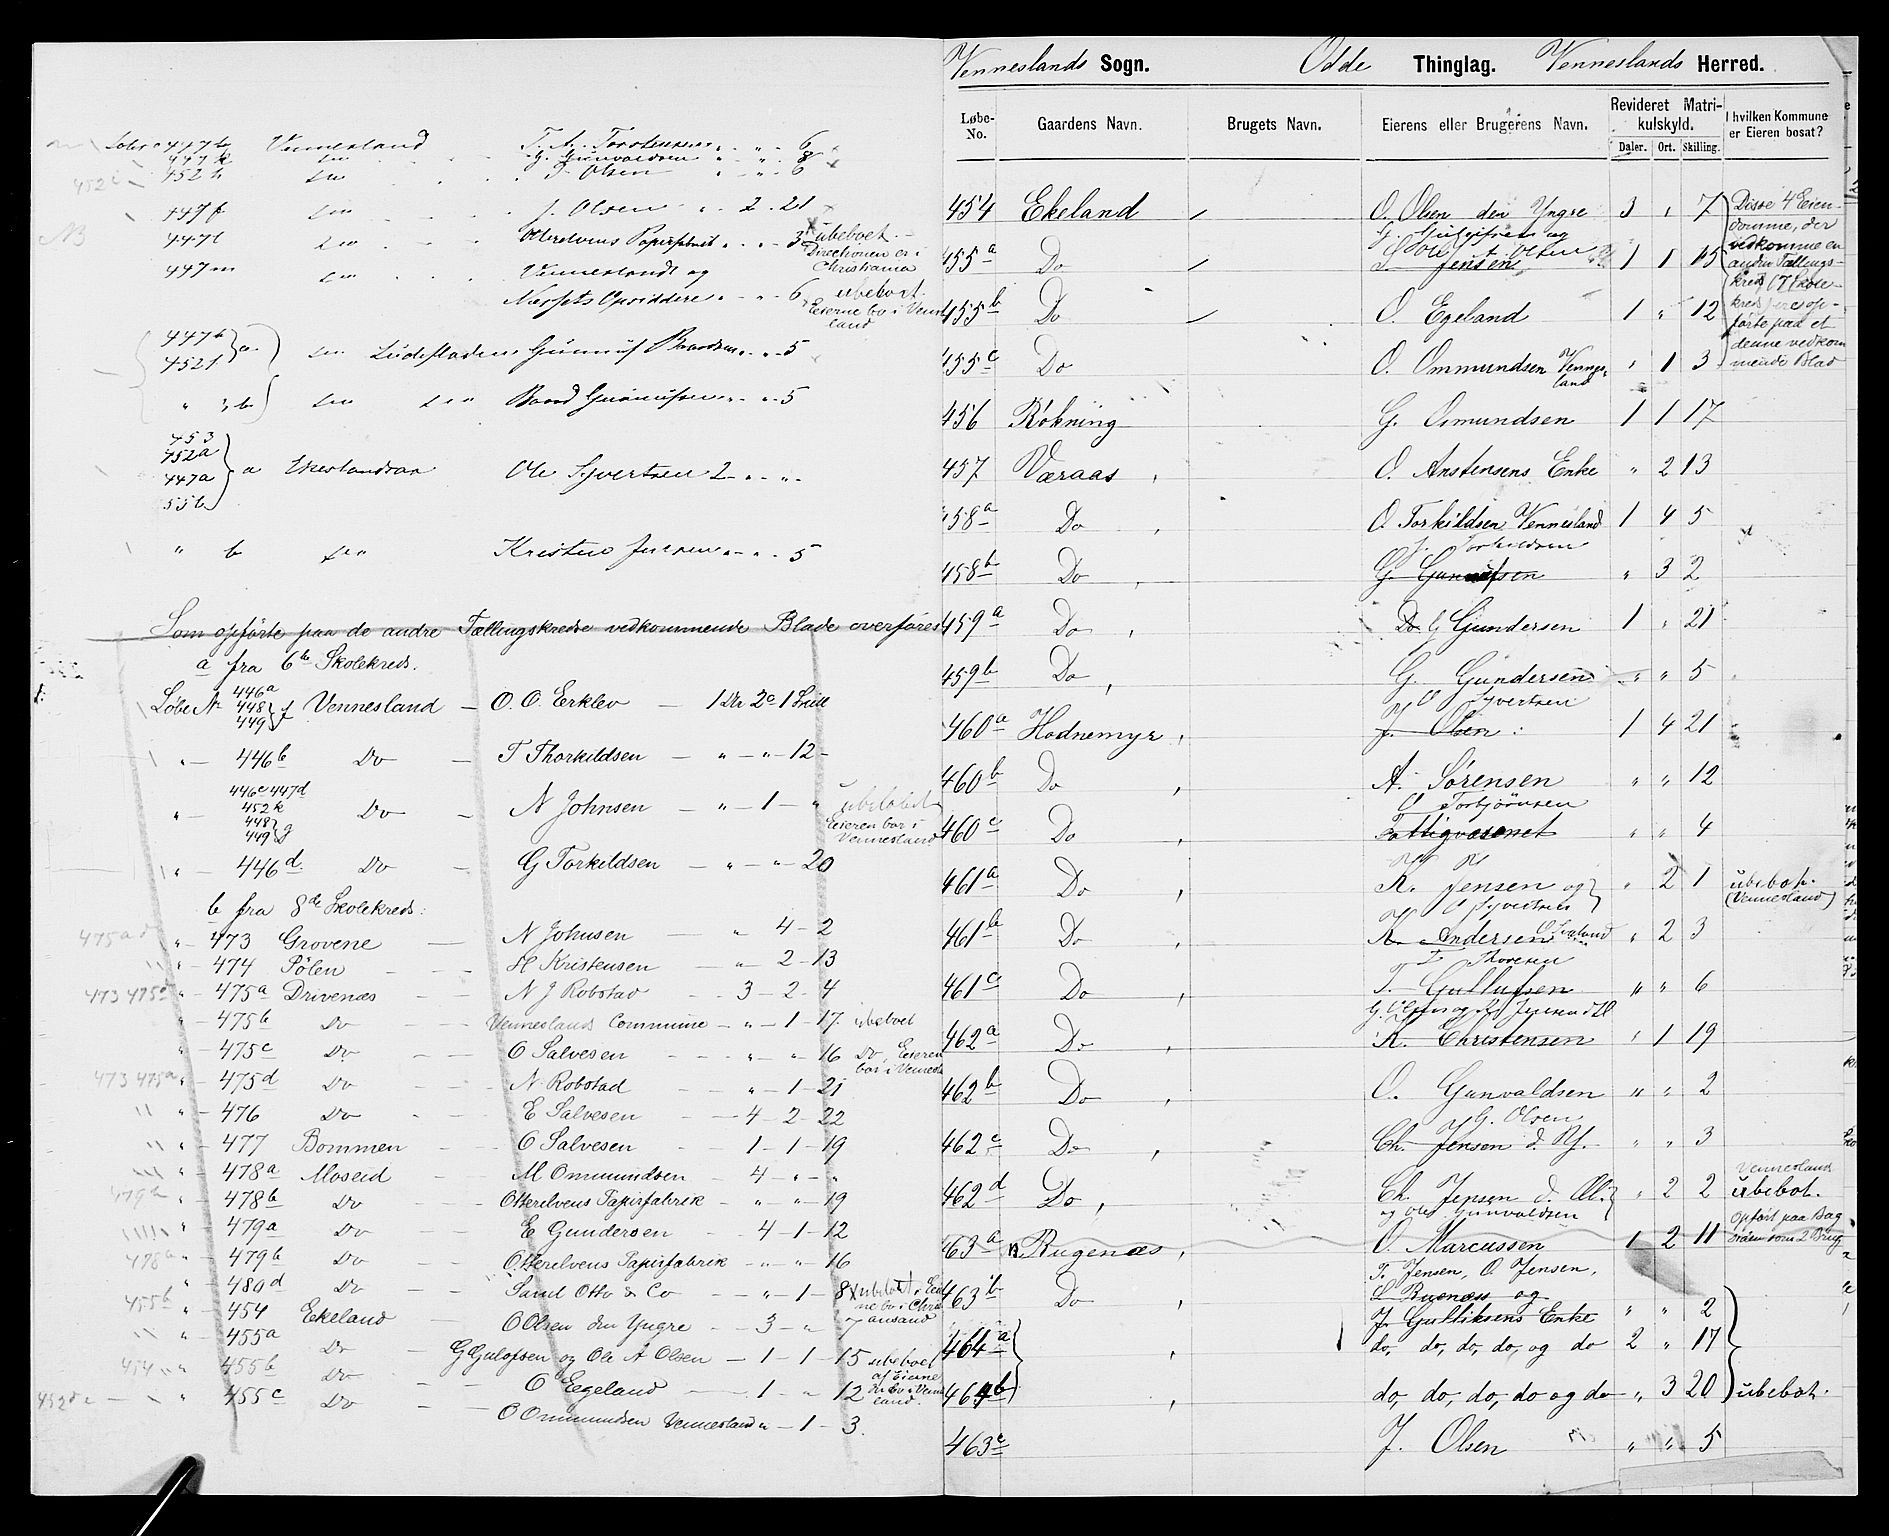 Løbe No 447b Vennesland T. A. Torstensen " " 6
447k do G. Gunvaldsen " " 8
452i
452h do J. Olsen " " 6
447f do J. Olsen " 2 21
NB
447l do Otterelvens Papirfabrik " " 3 ubeboet
Directionen er i Christiania
447m do Venneslands og
Næssets Opsiddere " " 6 ubeboet.
Eierne bo i Vennesland
447h
452f } a do Lüdefladen Gunnuf " " 5
" " b do do Baard Gunnufsen " " 5
453
452a
447a
55b } a Ekelandsaa Ole Syvertsen 2 " "
" b do Kristen Jensen " " 5
Som opførte paa de andre Tællingskredse vedkommende Blade overføres
a fra 6te Skolekreds.
Løbe No 446a 448 449 } f Vennesland – O. O. Erklev – 1 Dlr 2 o 1 Skill
" – 446b Do – T Thorkildsen – " – " – 12 –
" – 446c 447d 452k 448 449 } g Do – N Johnsen – " – 1 – " ubeboet
Eieren bor i
Vennesland
" – 446d Do – G Torkildsen – " – " – 20
b fra 8de Skolekreds:
475a d " – 473 Grovene – N Johnsen – " 4 – 2
" – 474 Pølen – H Kristensen – " 2 – 13
473 475d " – 475a Drivenæs – N J Robstad – 3 – 2 – 4
" – 475b Do Venneslands Commune – " – 1 – 17. ubeboet
" – 475c Do – O Salvesen – " – " – 16 Do, Eieren
bor i Vennesla
473 475a " – 475d Do – N. Robstad – " – 1 – 21
" – 476 Do – E Salvesen – 4 – 2 – 22
" – 477 Bommen – O Salvesen – 1 – 1 – 19
" – 478a Moseid – M Ommundsen – 4 – " – "
479a " – 478b Do Otterelvens Papirfabrik – " – " – 19
" – 479a Do – E Gundersen – 4 – 1 – 12
478a " – 479b Do Otterelvens Papirfabrik – " – " – 16
" – 480d Do – Saml Otto & Co – " – 1 – 8 ubeboet, Eier
ne bo i Chris
ansand
455b " – 454 Ekeland – O Olsen den Yngre – 3 – " – 7
" – 455a Do – G Gulofsen og Ole A Olsen – 1 – 1 – 15 ubeboet
af Eierne
454 " – 455b Do – O Eegeland – 1 – " – 12 der bo i Venne
land.
452 " – 455c Do – O Ommundsen Vennesland " – 1 – 3.
Venneslands Sogn. Odde Thinglag. Venneslands Herred.
Løbe-No. Gaardens Navn. Brugets Navn. Eierens eller Brugerens Navn. Revideret Matrikulskyld. I hvilken Kommune er Eieren bosat?
Daler. Ort. Skilling.
454 Ekeland O. Olsen den Yngre 3 " 7 Disse 4 Eien-
domme, der
vedkomme en
anden Tællings-
kreds (7 Skole-
kreds) ere op-
førte paa et
denne vedkom
mende Blad
455a Do G. Gulofsen og Ole A Olsen
Jensen 1 1 15
455b Do O. Egeland 1 " 12
455c Do O. Ommundsen Vennesland " 1 3
456 Røkning G. Osmundsen 1 1 17
457 Væraas O. Anstensens Enke " 2 13
458a Do O Torkildsen Vennesland 1 4 5
458b Do J. Torkildsen
G. Gunnufsen " 3 2
459a Do Do G Gundersen 1 " 21
459b Do G. Gundersen " " 5
460a Hodnemyr O Syvertsen
J. Olsen 1 4 21
460b Do A. Sørensen " " 12
460c Do O Torbjørnsen
Fattigvæsenet " " 4
461a Do K. Jensen og } " 2 1 ubebot.
(Vennesland)
O Syvertsen
461b Do K. Andersen " 2 3
461c Do T Thoresen
T. Gullufsen " " 6
462a Do K. Christensen " 1 19
462b Do O. Gunvaldsen " " 2
462c Do G. Olsen
Ch. Jensen d. " " 3
462d Do Ch. Jensen d. " 2 2 Vennesland
ubebot.
og Ole Gunvaldsen
463a Rugenæs O. Marcussen 1 2 11 Opført paa Bag
siden som 2 Brug
463b Do T. Jensen, O. Jensen,
L Rugnæss og
J. Gulliksens Enke " " 2
464a do, do, do, do, og do 2 " 17
464b do, do, do, do og do " 3 20 ubebot.
463c J. Olsen " " 5